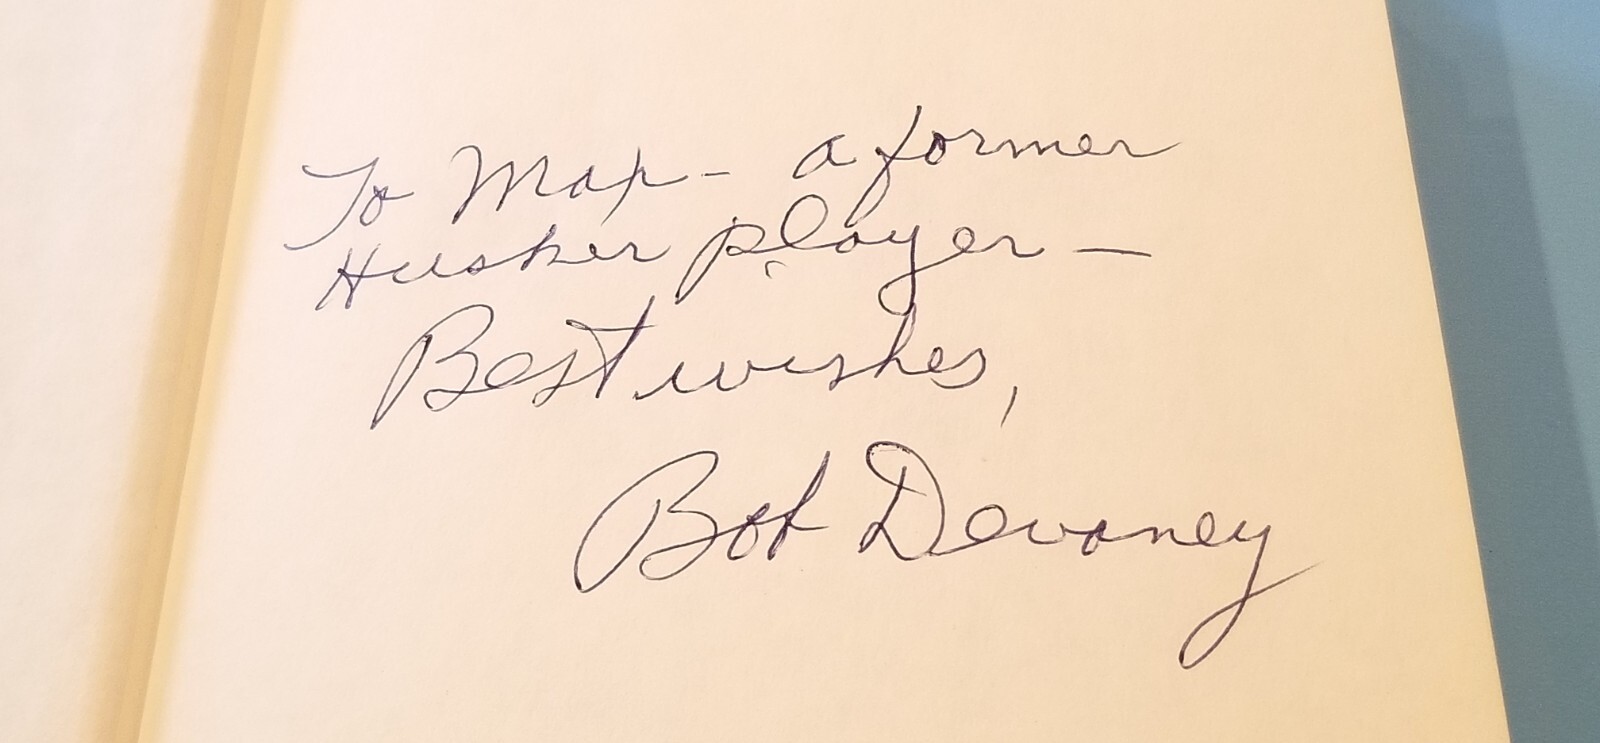 To Max- a former
Husker player —
Best wishes,
Bob Devaney